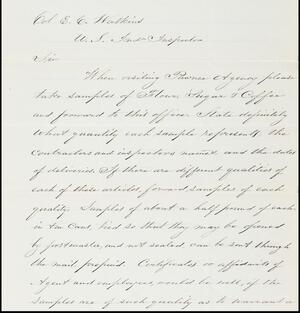 Col E. C. Watkins
U. S. Ind Inspector
Sir
When visiting Pawnee Agency please
take samples of Flour, Sugar & Coffee
and forward to this office. State definitely
what quantity each sample represents, the
contractors and inspectors names, and the dates
of deliveries. If there are different qualities of
each of these articles forward samples of each
quality. Samples of about a half pound of each,
in tin cans, tied so that they may be opened
by postmaster, and not sealed can be sent through
the mail prepaid. Certificates or affidavits of
Agent and employees, would be well, if the
samples are of such quality as to warrant a